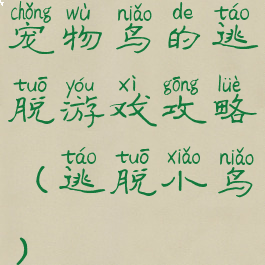 chǒng wù niǎo de táo
宠物鸟的逃
tuō yóu xì gōng lüè
脱游戏攻略
táo tuō xiǎo niǎo
(逃脱小鸟
)